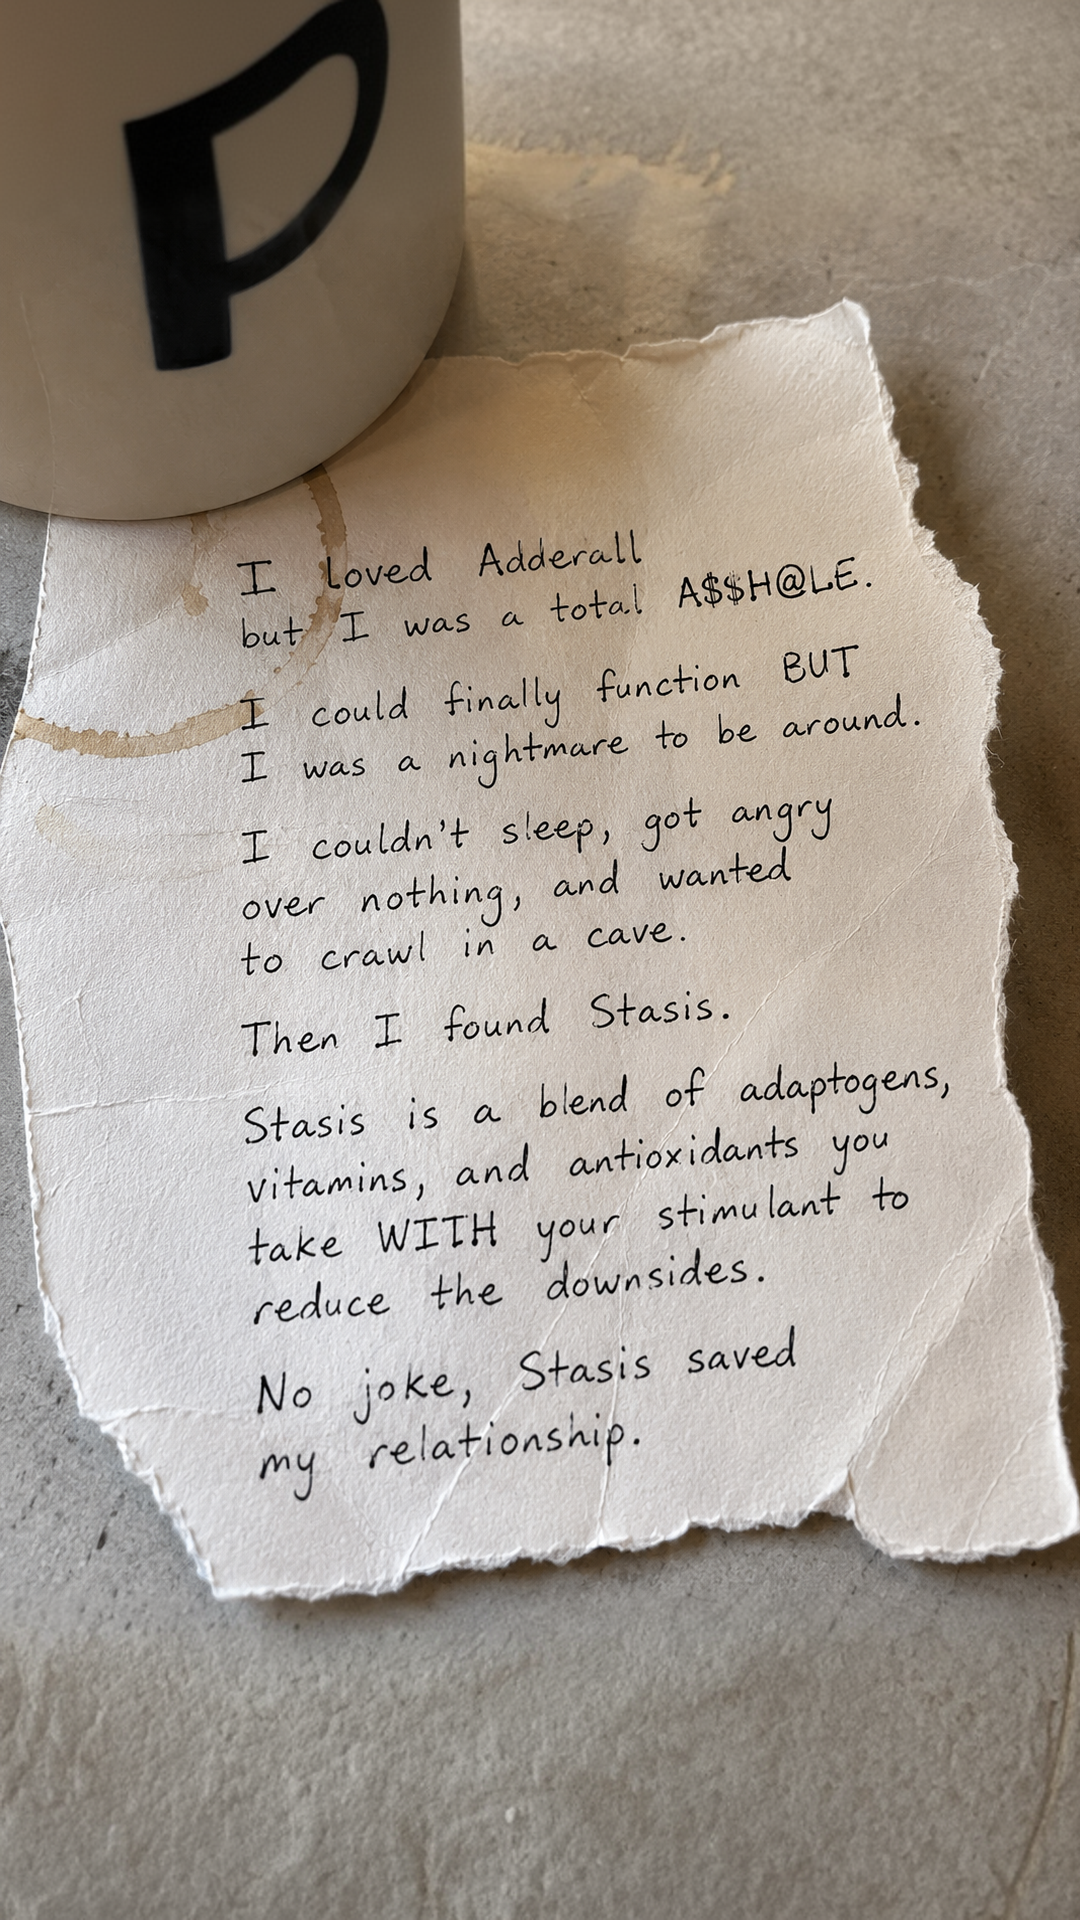 P
I loved Adderall
but I was a total A$$H@LE.
I could finally function BUT
I was a nightmare to be around.
I couldn't sleep, got angry
over nothing, and wanted
to crawl in a cave.
Then I found Stasis.
Stasis is a blend of adaptogens,
vitamins, and antioxidants you
take WITH your stimulant to
reduce the downsides.
No joke, Stasis saved
my relationship.